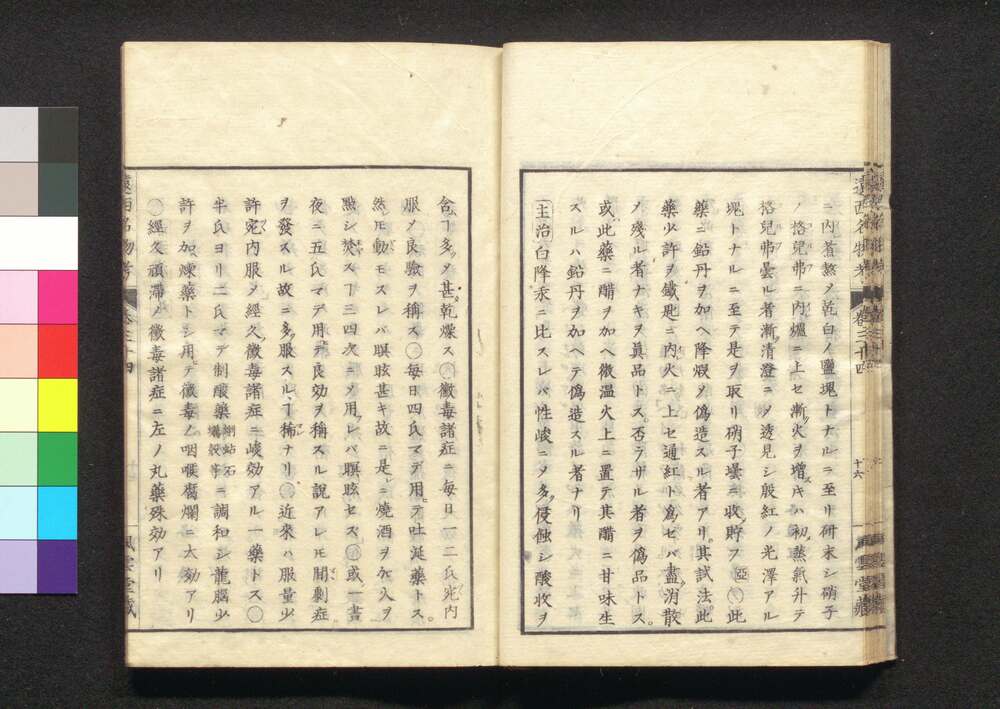 遠西名物考 卷三十四 十六 風雲堂藏
ニ内畜熬ノ乾白ノ鹽塊トナルニ至リ研末シ硝子
ノ格兒弗ニ内爐ニ上セ漸火ヲ增ス初ハ蒸氣升テ
格兒弗曇ル者漸清澄ニメ透見シ殷紅ノ光澤アル
塊トナルニ至テ是ヲ取リ硝子壜ニ收貯フ 亞 ○此
藥ニ鉛丹ヲ加ヘ降煅メ僞造スル者アリ其試法此
藥少許ヲ鐵匙ニ内火ニ上セ通紅ト爲セバ盡消散
メ殘ル者ナキヲ眞品トス否ラザル者ヲ僞品トス。
或此藥ニ醋ヲ加ヘ微温火上ニ置テ其醋ニ甘味生
スルハ鉛丹ヲ加ヘテ僞造スル者ナリ
主治白降汞ニ比スレバ性峻ニメ多侵蝕シ酸收ヲ
含ヿ多メ甚乾燥ス○黴毒諸症ニ毎日一二氏宛内
服メ良驗ヲ稱ス○毎日四氏マデ用テ吐涎藥トス。
然ヒ動モスレバ瞑眩甚キ故ニ是ニ燒酒ヲ灸入ヲ
點シ焚スヿ三四次ニメ用レバ瞑眩セス○或一書
夜ニ五氏マデ用テ良効ヲ稱スル說アレヒ間劇症
ヲ發スル故ニ多服スルヿ稀ナリ○近來ハ服量少
許宛内服メ經久黴毒諸症ニ峻効アル一藥トス○
半氏ヨリ二氏マデ制酸藥 蜊蛄石 蠣殼等 ニ調和シ龍腦少
許ヲ加煉藥トシ用テ黴毒ノ咽喉腐爛ニ大効アリ
○經久頑滯ノ黴毒諸症ニ左ノ丸藥殊効アリ
遠西名物考 卷三十四 風雲堂藏